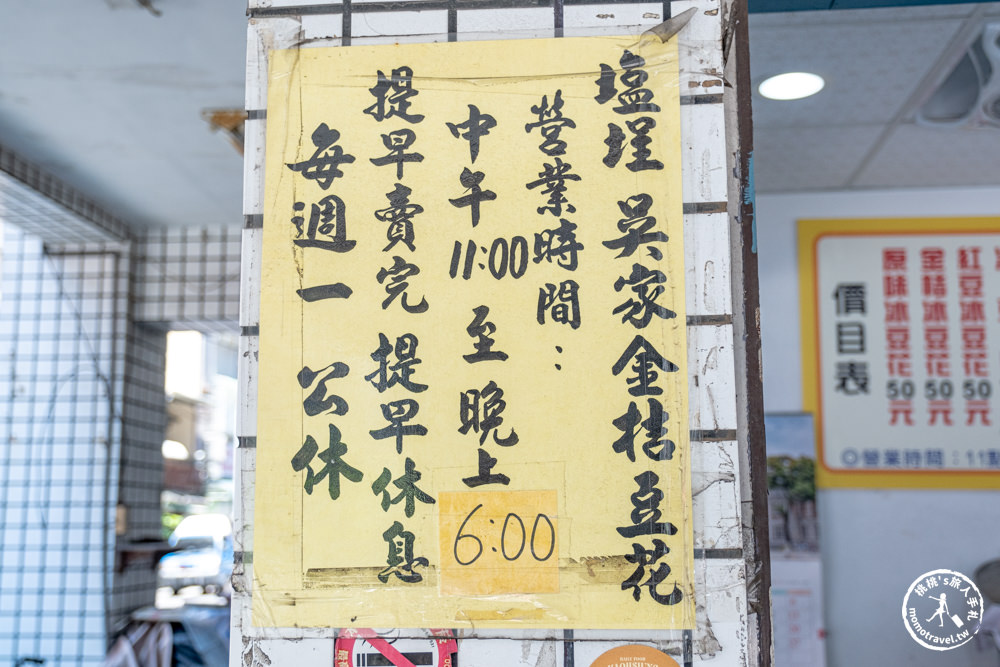 塩埕 吳家金桔豆花
營業時間：
中午 11:00 至 晚上 6:00
提早賣完 提早休息
每週一 公休
紅豆冰豆花50元
金桔冰豆花50元
原味冰豆花50元
價目表
◎營業時間：11點
桃桃's旅人手札
momotravel.tw